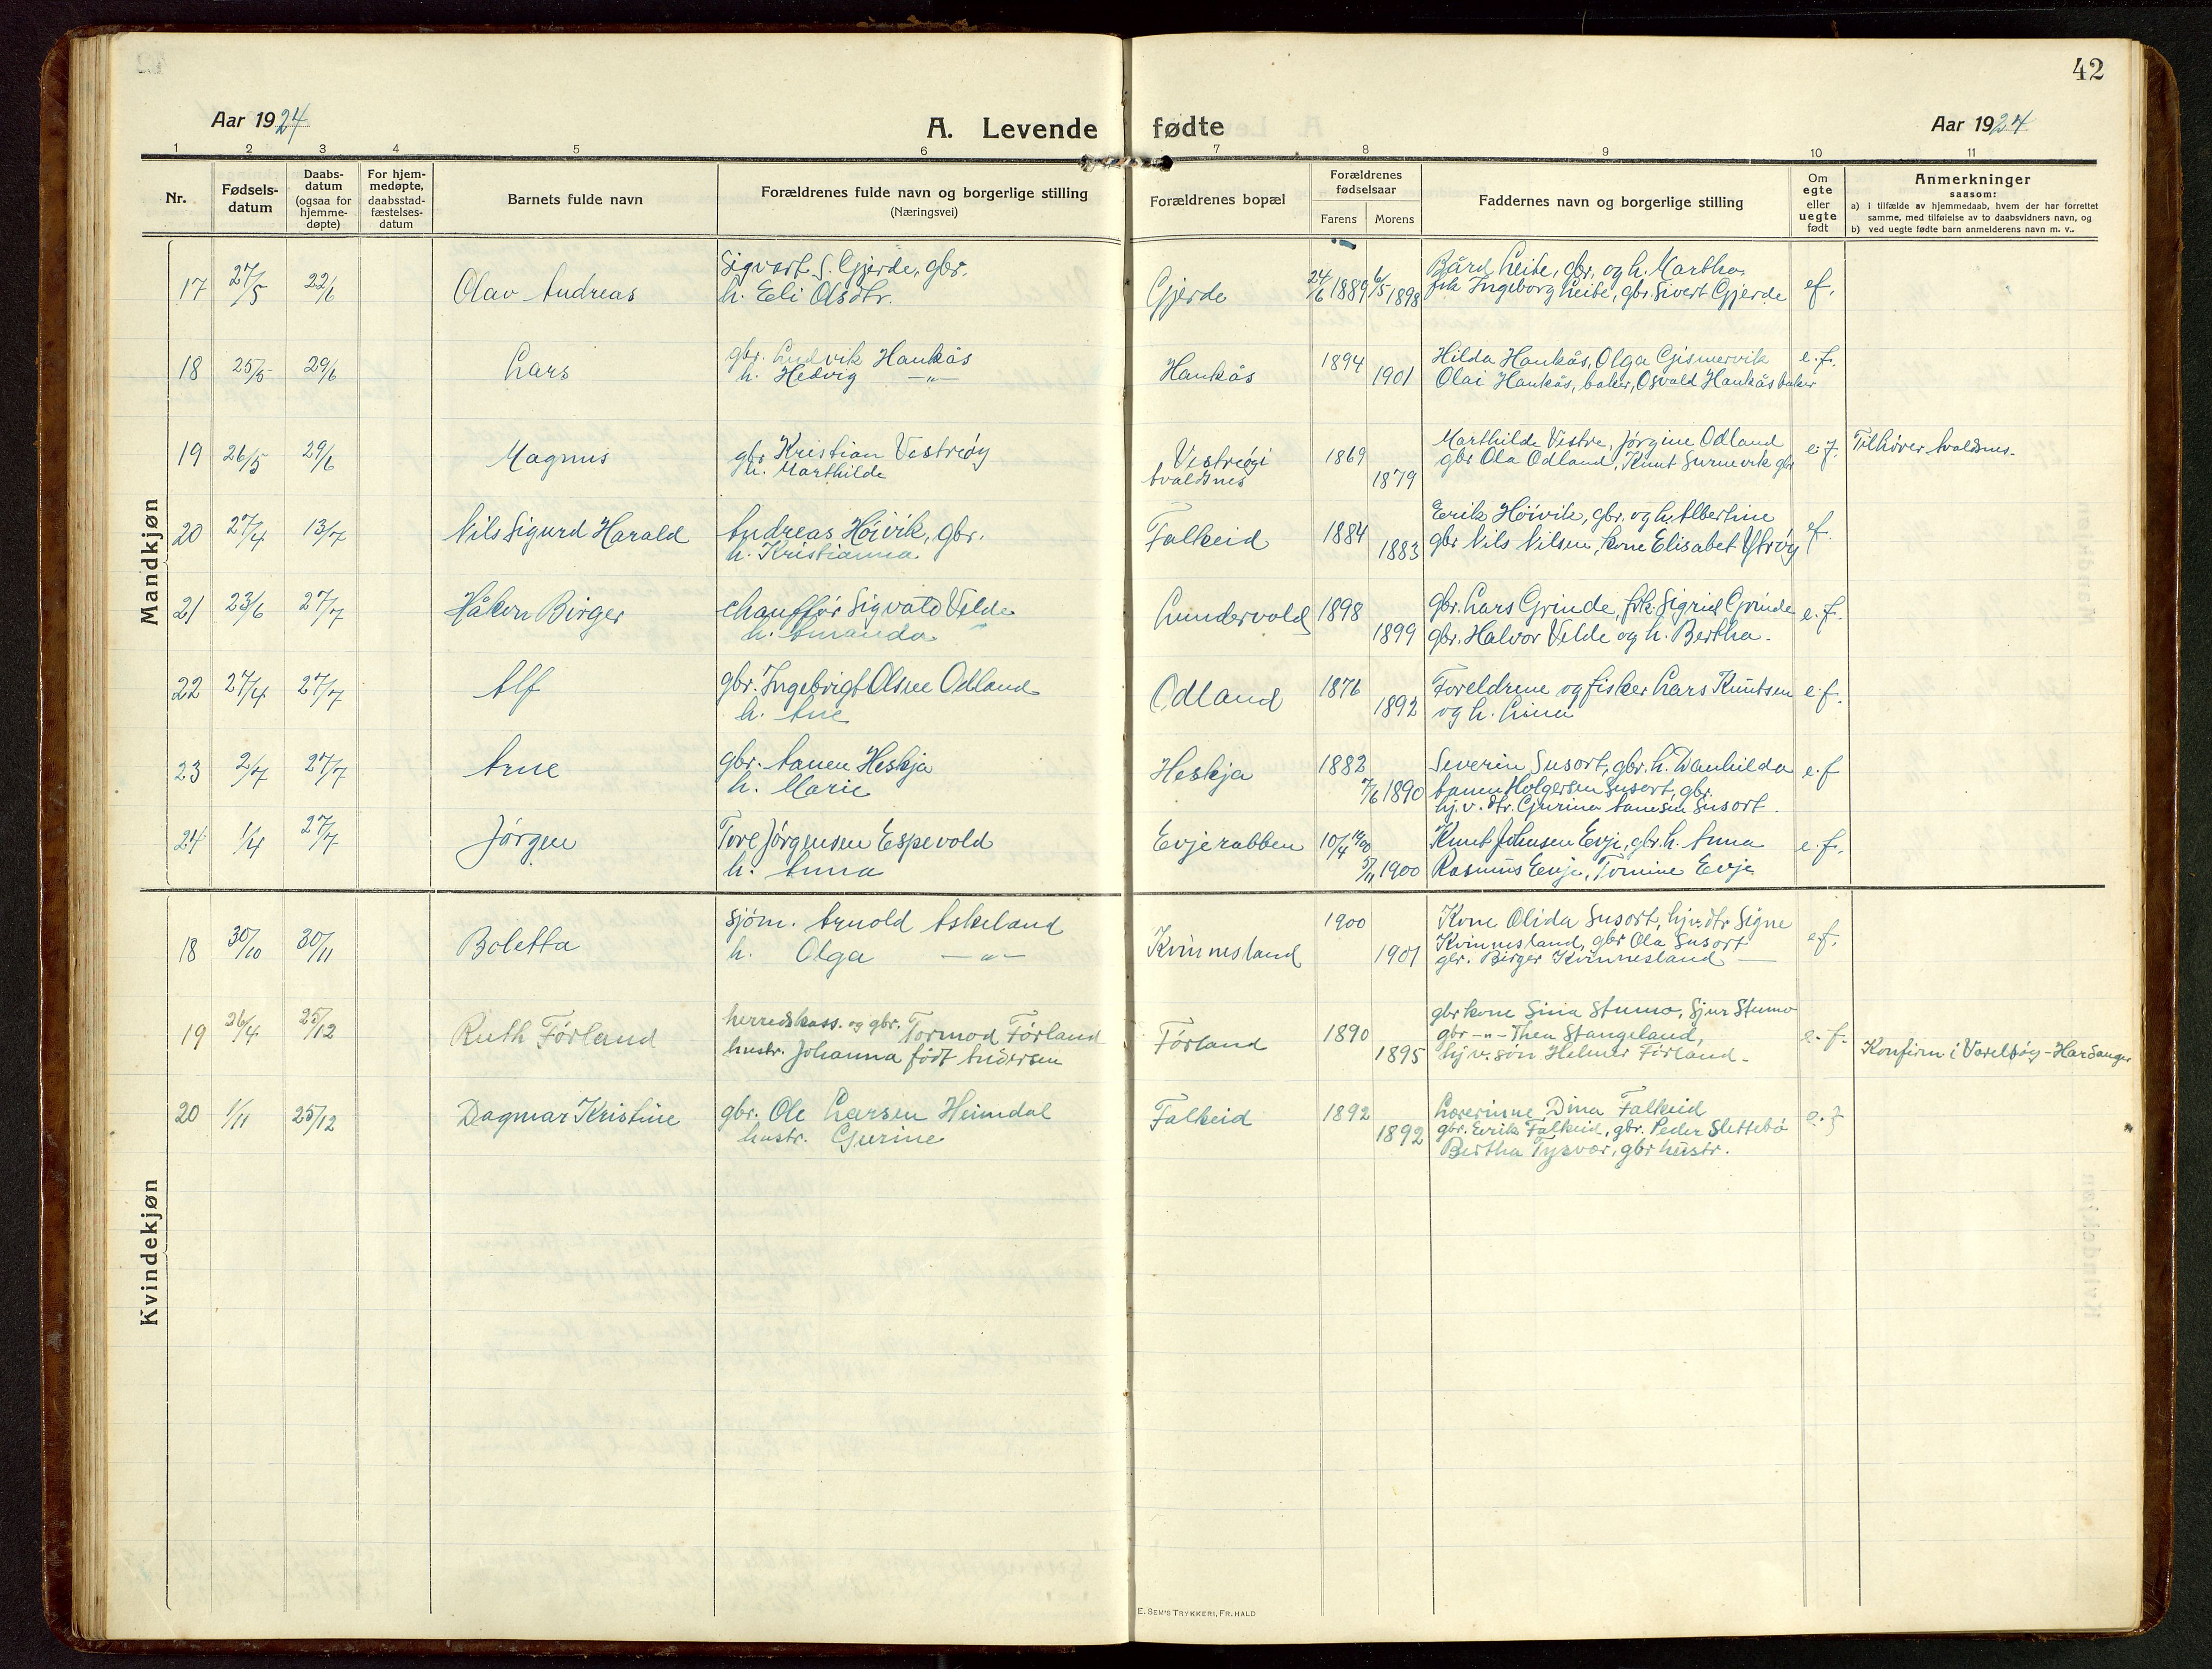 42
Aar 1924
A. Levende fødte
Aar 1924
1 2 3 4 5 6 7 8 9 10 11
Nr.
Fødsels-
datum
Daabs-
datum
(ogsaa for
hjemme-
døpte)
For hjem-
medøpte,
daabsstad-
fæstelses-
datum
Barnets fulde navn
Forældrenes fulde navn og borgerlige stilling
(Næringsvei)
Forældrenes bopæl
Forældrenes
fødselsaar
Farens Morens
Faddernes navn og borgerlige stilling
Om
egte
eller
uegte
født
Anmerkninger
saasom:
a) i tilfælde av hjemmedaab, hvem der har forrettet
samme, med tilføielse av to daabsvidners navn, og
b) ved uegte fødte barn anmelderens navn m. v..
Mandkjøn
17 27/5 22/6 Olav Andreas
Sigvart S. Gjerde, gbr.
h. Eli Olsdtr.
Gjerde 24/6 1889 6/5 1898
Bård Leite, gbr. og h. Martha.
frk Ingeborg Leite, gbr. Sivert Gjerde
ef.
18 25/5 29/6 Lars
gbr. Ludvik Haukås
h. Hedvig —"—
Haukås 1894 1901
Hilda Haukås, Olga Gismervik
Olai Haukås, baker, Osvald Haukås baker
e.f.
19 26/5 29/6 Magnus
gbr Kristian Vestreøy
h. Marthilde
Vestreøy i
Avaldsnes
1869 1879
Marthilde Vestre, Jørgine Odland
gbr Ola Odland, Knut Surnevik gbr
e.f. Tilhører Avaldsnes.
20 27/4 13/7 Nils Sigurd Harald
Andreas Höivik, gbr.
h. Kristianna
Falkeid 1884 1883
Erik Höivik, gbr. og h. Albertine
gbr Nils Nilsen, kone Elisabet Ytrøy
ef.
21 23/6 27/7 Håkon Birger
chauffør Sigvald Velde
h. Amanda
Lundervold 1898 1899
gbr. Lars Grinde, frk. Sigrid Grinde
gbr. Halvor Velde og h. Bertha.
e.f.
22 27/4 27/7 Alf
gbr. Ingebrigt Olsen Odland
h. Ane
Odland 1876 1892
Foreldrene og fisker Lars Knutsen
og h. Lina
e.f.
23 2/7 27/7 Arne
gbr. Aanen Heskja
h. Marie
Heskja 1882 7/6 1890
Severin Susort, gbr. h. Danhilda
Aanen Holgersen Susort, gbr.
hj.v. dtr. Gjurina Aanesen Susort.
e.f
24 1/4 27/7 Jørgen
Tore Jørgensen Espevold
h. Anna
Evjerabben 10/4 1900 5/11 1900
Knut Johnsen Evje, gbr. h. Anna
Rasmus Evje, Tomine Evje
e.f.
Kvindekjøn
18 30/10 30/11 Boletta
sjøm. Arnold Askeland
h. Olga —"—
Kvinnesland 1900 1901
Kone Olida Susort, hjv. dtr Signe
Kvinnesland, gbr Ola Susort
gbr. Birger Kvinnesland —
e.f.
19 26/4 25/12 Ruth Førland
herredskass. og gbr. Tormod Førland
hustr. Johanna født Andersen
Førland 1890 1895
gbr kone Sina Stumo, Sjur Stumo
gbr —"— Thea Stangeland,
hjv. søn Helmer Førland.
e.f. Konfirm i Varelsøy - Hardanger
20 1/11 25/12 Dagmar Kristine
gbr. Ole Larsen Heimdal
hustr. Gjurine
Falkeid 1892 1892
Lærerinne Dina Falkeid
gbr. Erik Falkeid, gbr. Peder Slettebø
Bertha Tysvær, gbr hustr.
e.f
E. SEM'S TRYKKERI, FR. HALD